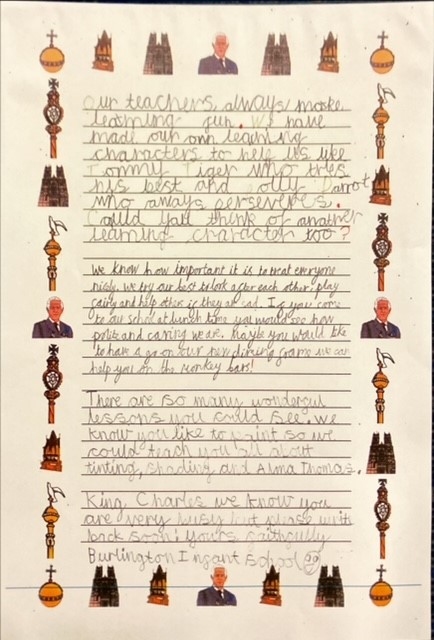 Our teachers always make
learning fun. We have
made our own learning
characters to help us like
Tommy Tiger who tries
his best and Polly Parrot
who always perseveres.
Could you think of another
learning character too?
We know how important it is to treat everyone
nicely. we try our best to look after each other, play
fairly and help others if they are sad. If you come
to our school at lunch time you would see how
polite and caring we are. Maybe you would like
to have a go on our new climing frame we can
help you on the monkey bars!
There are so many wonderful
lessons you could see. we
know you like to paint so we
could teach you all about
tinting, shading and Alma Thomas.
King Charles we know you
are very busy but please write
back soon! yours faithfully
Burlington Infant School